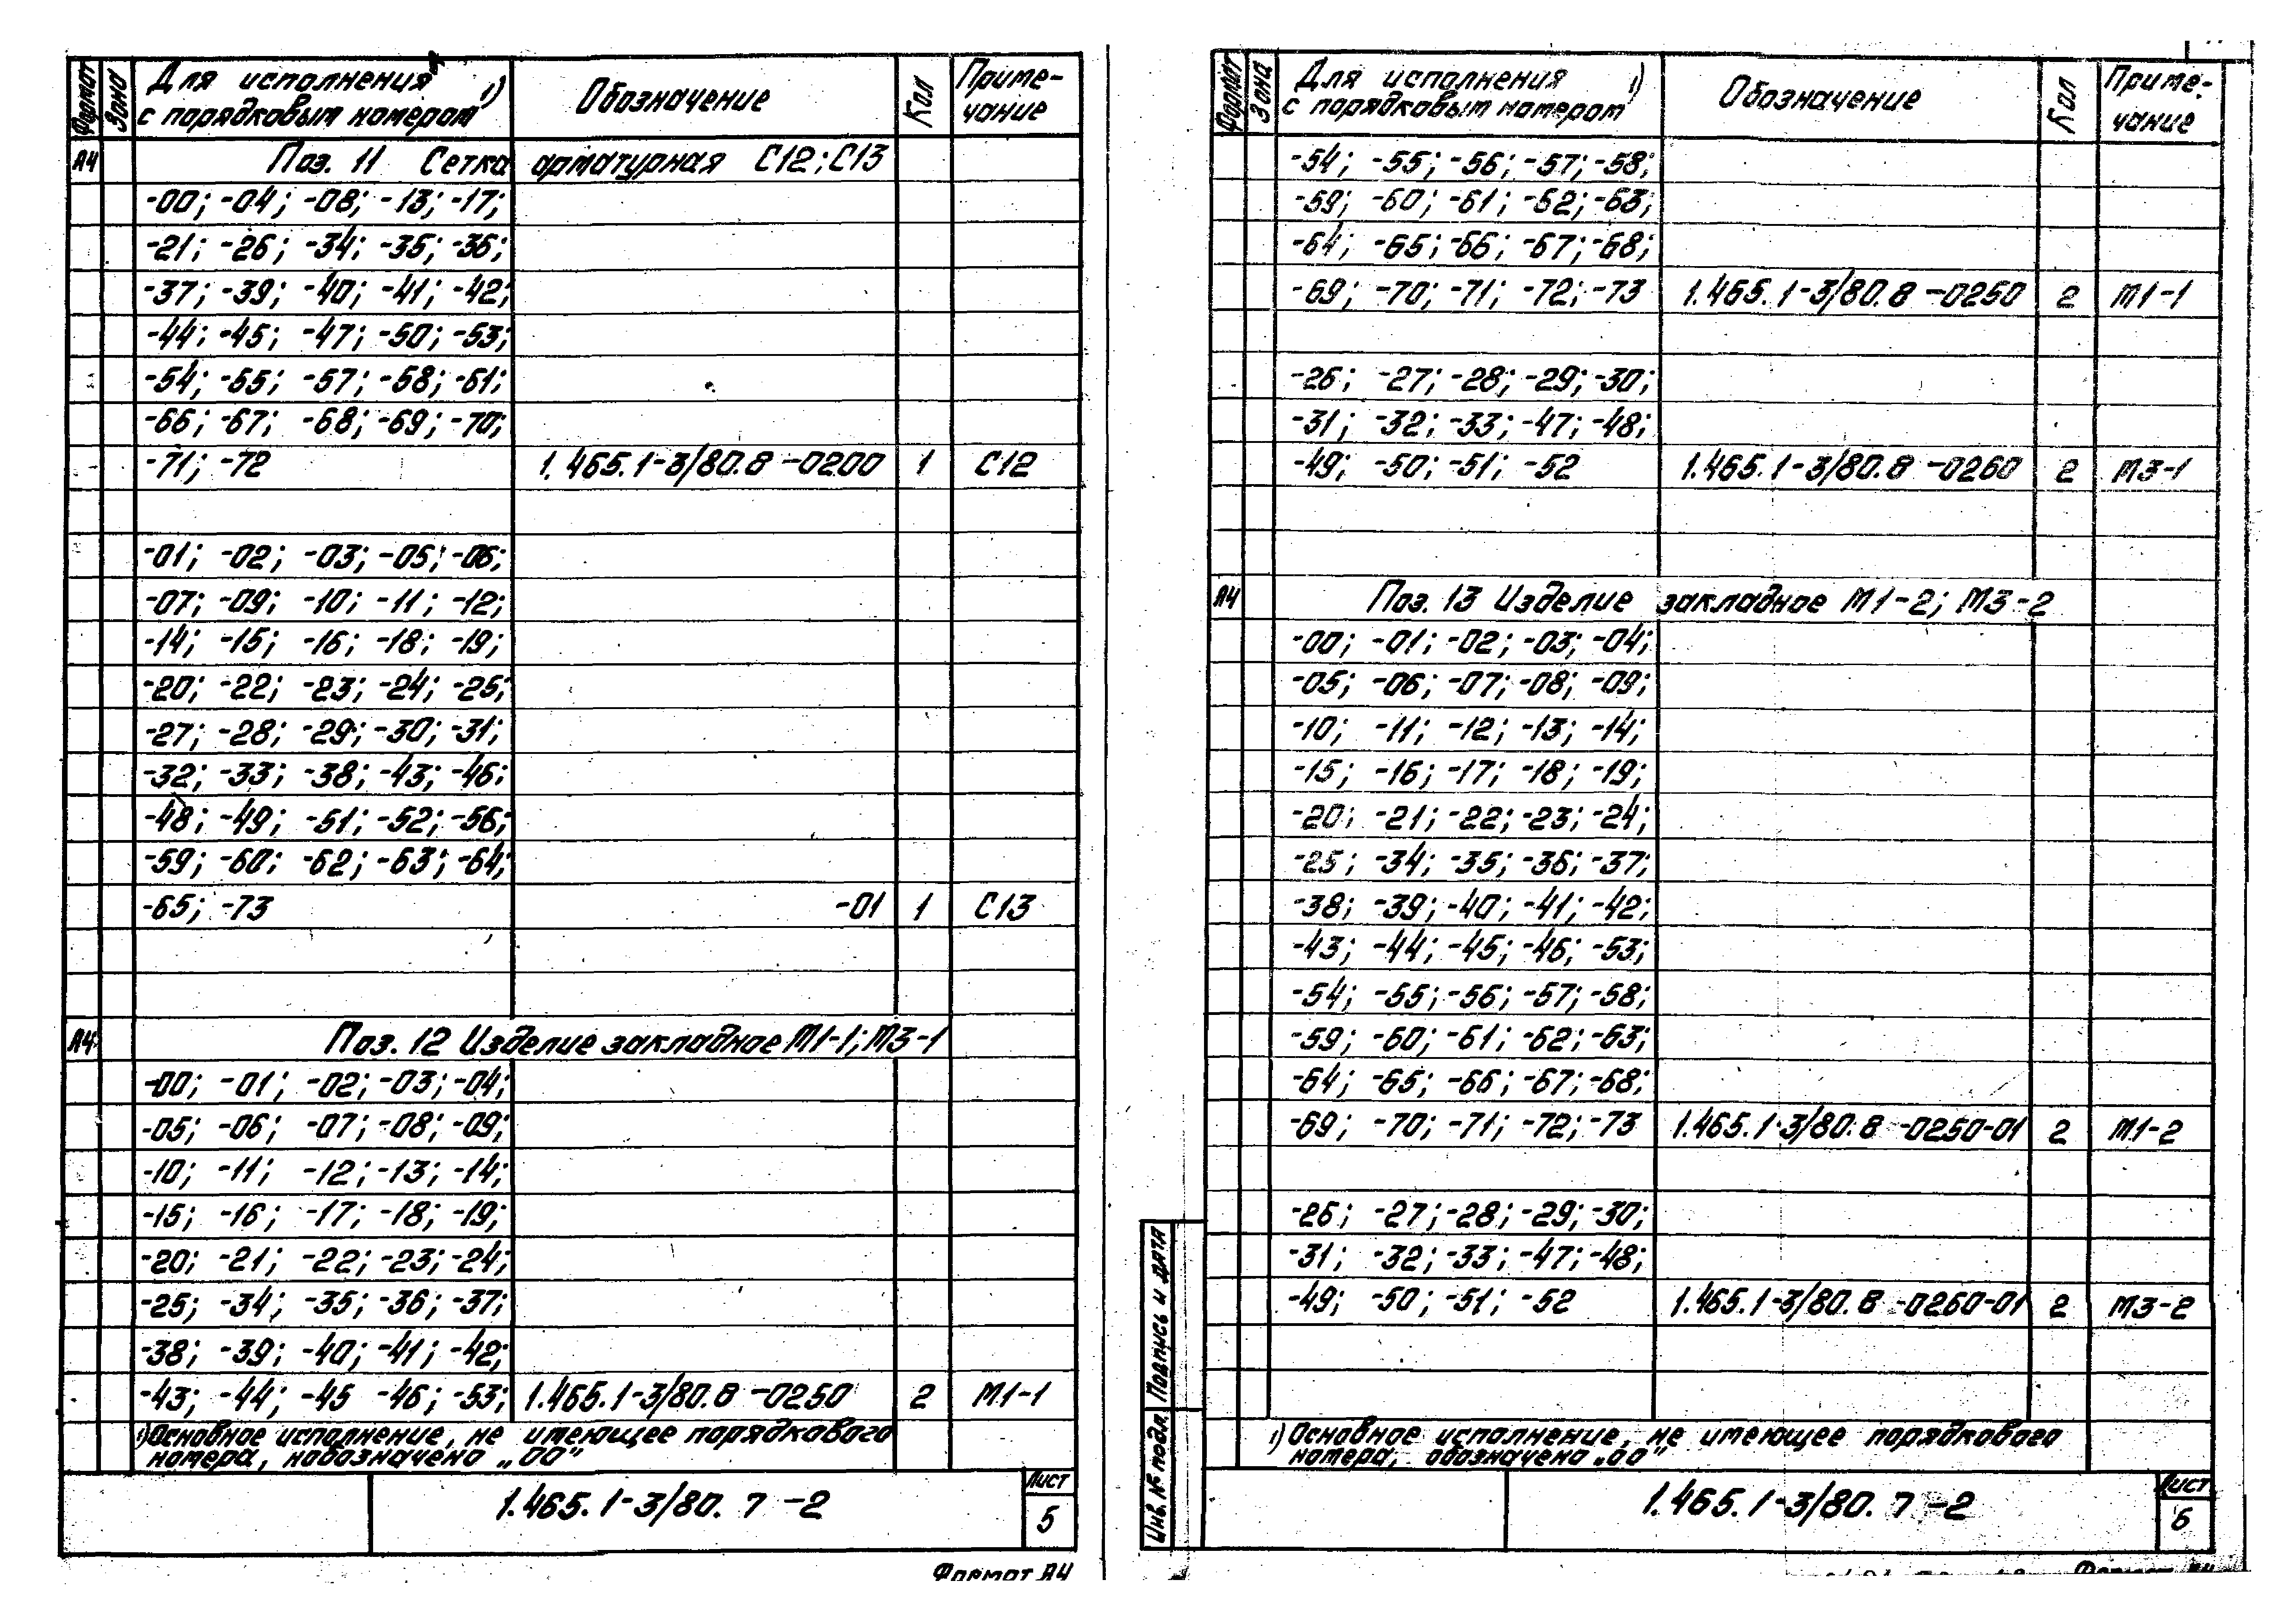 Формат
Зона
Для исполнения 1)
с порядковым номером
Обозначение
Кол
Приме-
чание
А4 Поз. 11 Сетка арматурная С12; С13
-00; -04; -08; -13; -17;
-21; -26; -34; -35; -36;
-37; -39; -40; -41; -42;
-44; -45; -47; -50; -53;
-54; -55; -57; -58; -61;
-66; -67; -68; -69; -70;
-71; -72 1.465.1-3/80.8 -0200 1 С12
-01; -02; -03; -05; -06;
-07; -09; -10; -11; -12;
-14; -15; -16; -18; -19;
-20; -22; -23; -24; -25;
-27; -28; -29; -30; -31;
-32; -33; -38; -43; -46;
-48; -49; -51; -52; -56;
-59; -60; -62; -63; -64;
-65; -73 -01 1 С13
А4 Поз. 12 Изделие закладное М1-1; М3-1
-00; -01; -02; -03; -04;
-05; -06; -07; -08; -09;
-10; -11; -12; -13; -14;
-15; -16; -17; -18; -19;
-20; -21; -22; -23; -24;
-25; -34; -35; -36; -37;
-38; -39; -40; -41; -42;
-43; -44; -45 -46; -53; 1.465.1-3/80.8 -0250 2 М1-1
1) Основное исполнение, не имеющее порядкового
номера, новозначено „00"
1.465.1-3/80. 7 -2
Лист
5
Формат А4
Формат
Зона
Для исполнения 1)
с порядковым номером
Обозначение
Кол
Приме-
чание
-54; -55; -56; -57; -58;
-59; -60; -61; -62; -63;
-64; -65; -66; -67; -68;
-69; -70; -71; -72; -73 1.465.1-3/80.8 -0250 2 М1-1
-26; -27; -28; -29; -30;
-31; -32; -33; -47; -48;
-49; -50; -51; -52 1.465.1-3/80.8 -0260 2 М3-1
А4 Поз. 13 Изделие закладное М1-2; М3-2
-00; -01; -02; -03; -04;
-05; -06; -07; -08; -09;
-10; -11; -12; -13; -14;
-15; -16; -17; -18; -19;
-20; -21; -22; -23; -24;
-25; -34; -35; -36; -37;
-38; -39; -40; -41; -42;
-43; -44; -45; -46; -53;
-54; -55; -56; -57; -58;
-59; -60; -61; -62; -63;
-64; -65; -66; -67; -68;
-69; -70; -71; -72; -73 1.465.1-3/80.8 -0250-01 2 М1-2
-26; -27; -28; -29; -30;
-31; -32; -33; -47; -48;
-49; -50; -51; -52 1.465.1-3/80.8 -0260-01 2 М3-2
1) Основное исполнение, не имеющее порядкового
номера, обозначено „00"
Инв. № подл. Подпись и дата
1.465.1-3/80. 7 -2
Лист
6
Формат А4